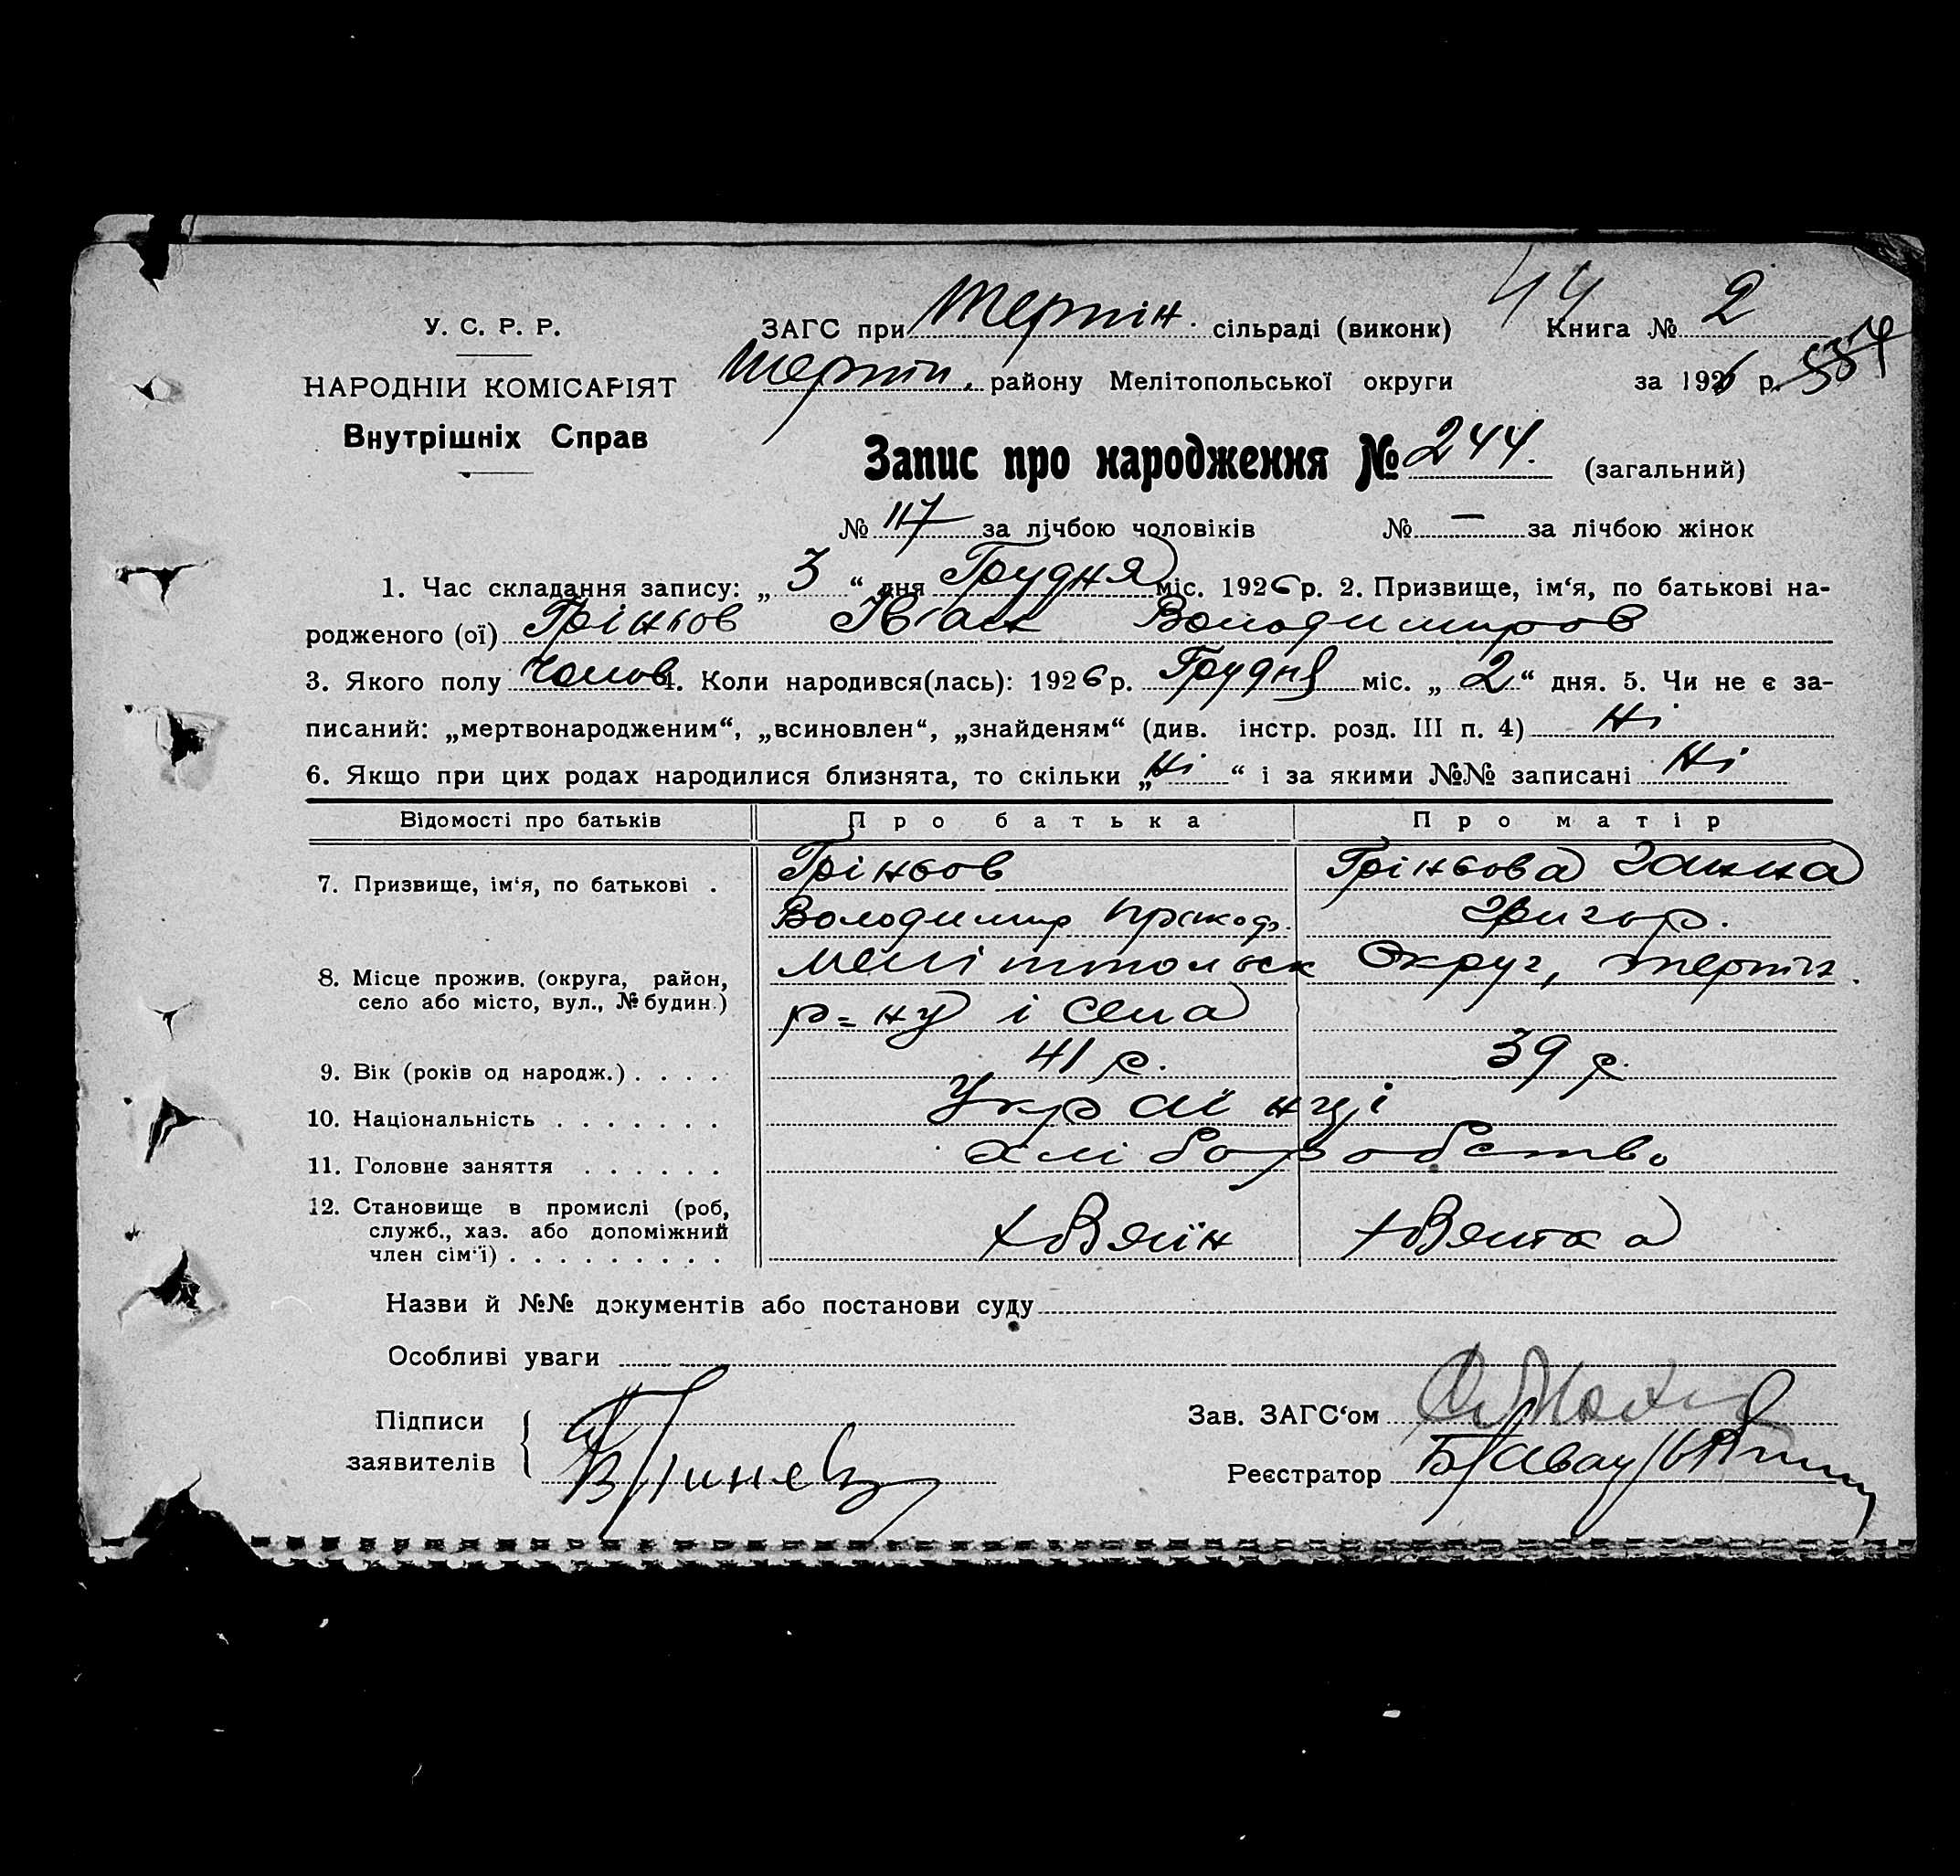 44
У. С. Р. Р.
ЗАГС при Терпін. сільраді (виконк) Книга № 2
НАРОДНІЙ КОМІСАРІЯТ
Терпін. району Мелітопольської округи за 1926 р.
Внутрішніх Справ
Запис про народження № 244. (загальний)
№ 117 за лічбою чоловіків № — за лічбою жінок
1. Час складання запису: „ 3 “ дня Грудня міс. 1926 р. 2. Призвище, ім‘я, по батькові на-
родженого (ої) Гріньов Іван Володимиров
3. Якого полу Чолов 4. Коли народився(лась): 1926 р. Грудня міс. „ 2 “ дня. 5. Чи не є за-
писаний: „мертвонародженим“, „всиновлен“, „знайденям“ (див. інстр. розд. III п. 4) Ні
6. Якщо при цих родах народилися близнята, то скільки „ Ні “ і за якими №№ записані Ні
Відомості про батьків Про батька Про матір
7. Призвище, ім‘я, по батькові . Гріньов Гріньова Ганна
Володимир Прокоф. Григор.
8. Місце прожив. (округа, район, Мелітопольск Округ, Терпін.
село або місто, вул., № будин.) р=ну і села
9. Вік (років од народж.) . . . . 41 р. 39 р.
10. Національність . . . . . . . Українці
11. Головне заняття . . . . . . хліборобство
12. Становище в промислі (роб,
служб., хаз. або допоміжний
член сім‘ї) . . . . . . . . .
Назви й №№ документів або постанови суду
Особливі уваги
Підписи
заявителів
Зав. ЗАГС‘ом
Реєстратор